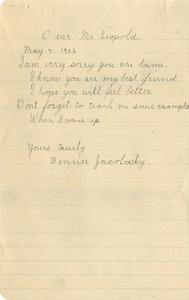 Dear Mr Leopold.
May 9. 1906
I am very sorry you are lame.
I know you are my best friend
I hope you will feel better
Dont forget to teach me some example
When I come up.
Yours truly
Bennie Jacobosky.